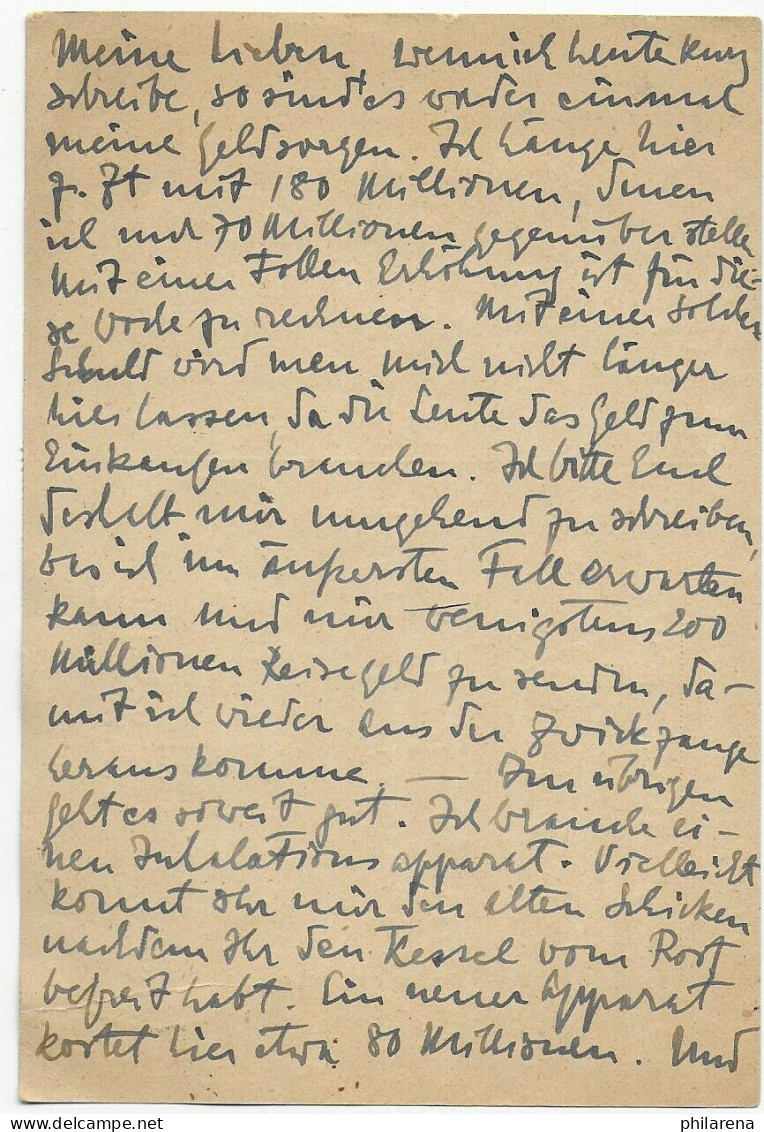 Meine Lieben, wenn ich heute kurz
schreibe, so sind es wieder einmal
meine Geldsorgen. Ich hänge hier
z. Zt mit 180 Millionen, denen
ich nur 70 Millionen gegenüber stelle
Mit einer tollen Erhöhung ist für die-
se Woche zu rechnen. Mit einer solchen
Schuld wird man mich nicht länger
hier lassen, da die Leute das Geld zum
Einkaufen brauchen. Ich bitte Euch
deshalb mir umgehend zu schreiben,
was ich im äußersten Fall erwarten
kann und mir wenigstens 200
Millionen Reisegeld zu senden, da-
mit ich wieder aus der Zwickzange
herauskomme. — Im übrigen
geht es soweit gut. Ich brauche ei-
nen Inhalationsapparat. Vielleicht
könnt Ihr mir den alten schicken
nachdem Ihr den Kessel vom Rost
befreit habt. Ein neuer Apparat
kostet hier etwa 80 Millionen. Und
philarena